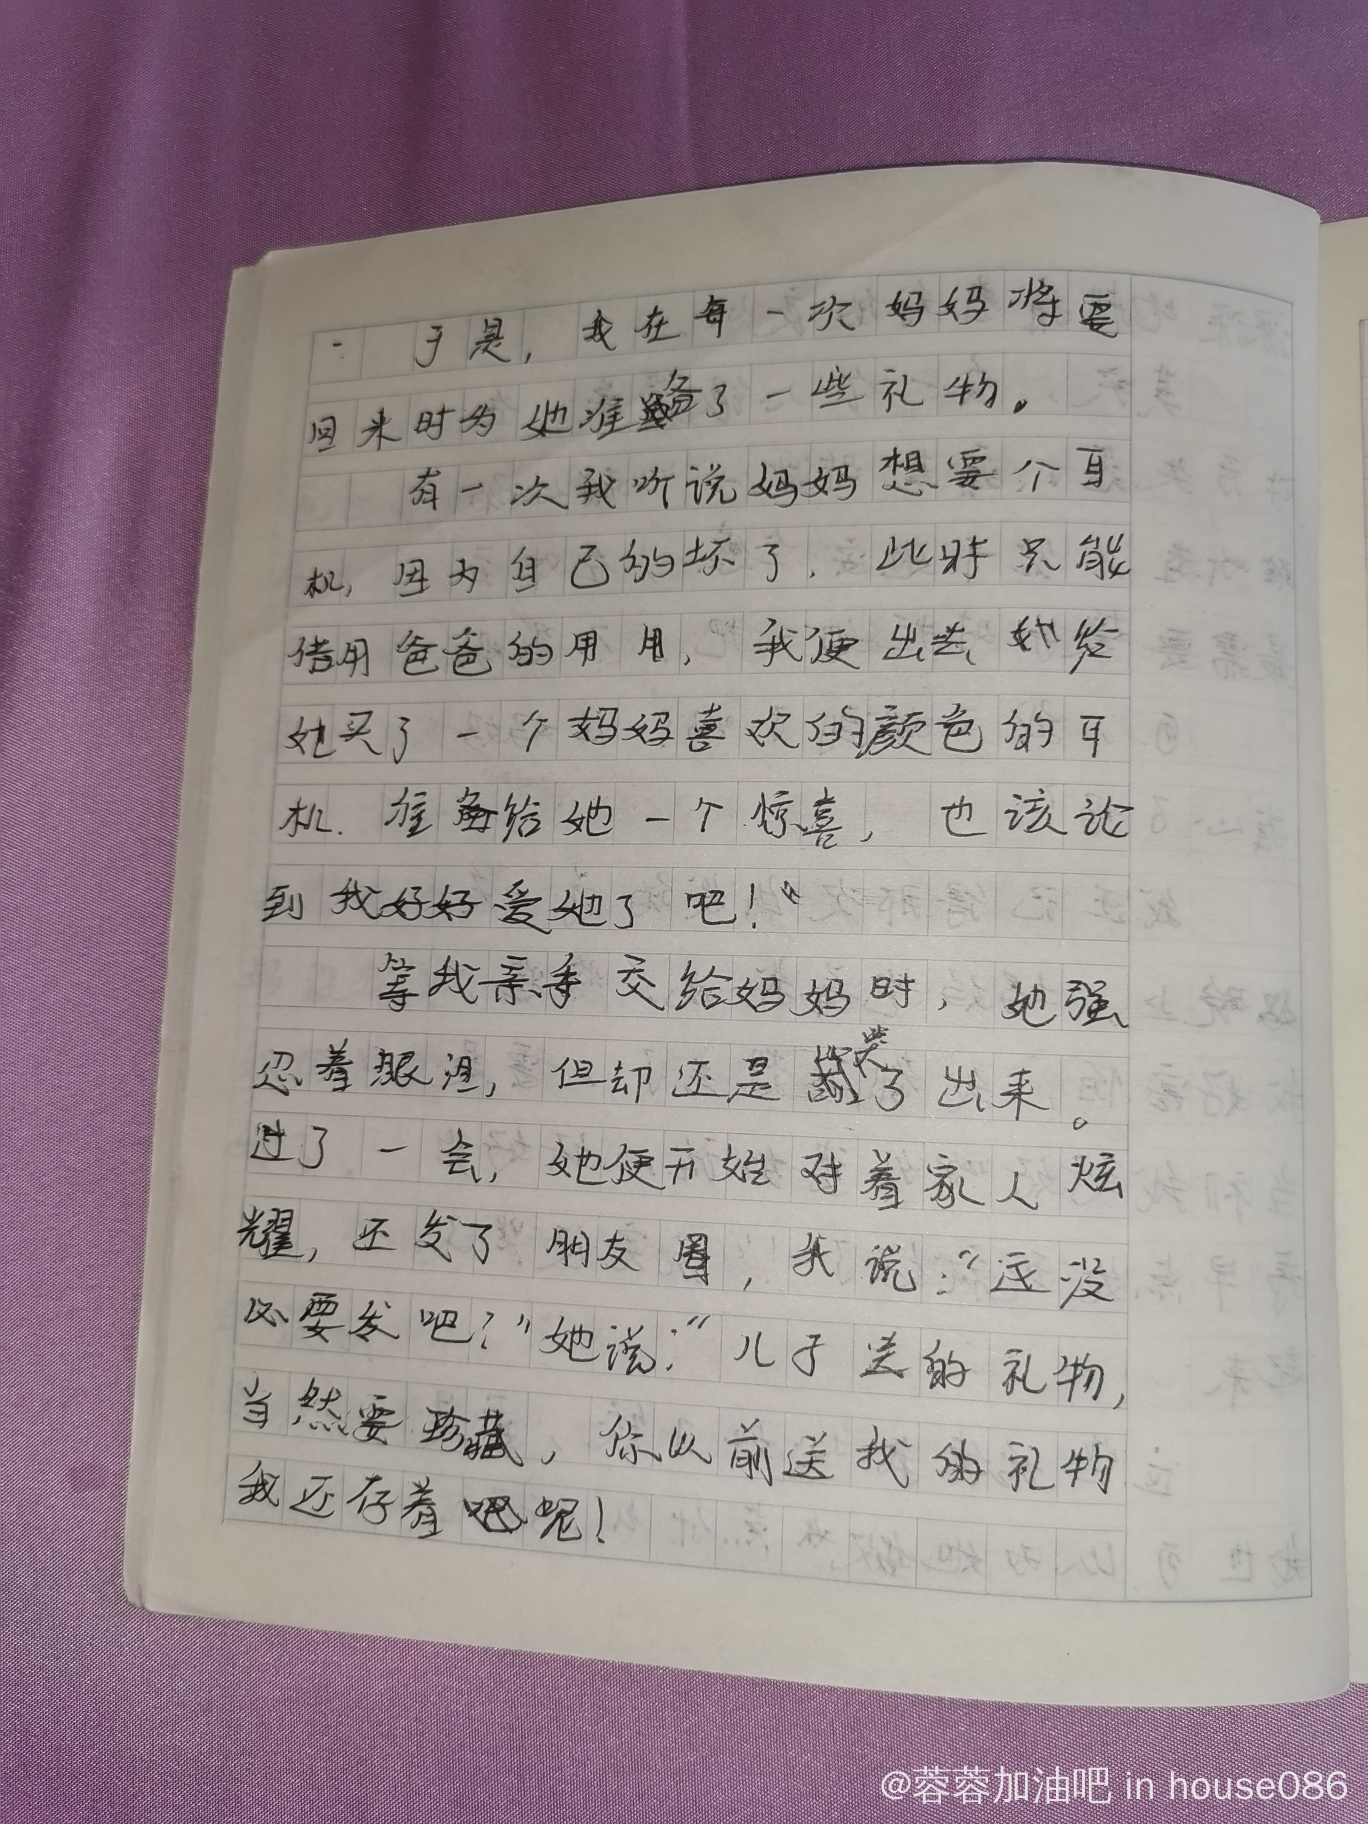 于是，我在每一次妈妈将要
回来时为她准备了一些礼物。
有一次我听说妈妈想要个耳
机，因为自己的坏了，此时只能
借用爸爸的用用，我便出去 给
她买了一个妈妈喜欢的颜色的耳
机.准备给她一个惊喜，也该论
到我好好爱她了吧！“
等我亲手交给妈妈时，她强
忍着眼泪，但却还是哭了出来。
过了一会，她便开始对着家人炫
耀，还发了朋友圈，我说：“这没
必要发吧？”她说：“儿子送的礼物，
当然要珍藏，你以前送我的礼物
我还存着呢！
@蓉蓉加油吧 in house086